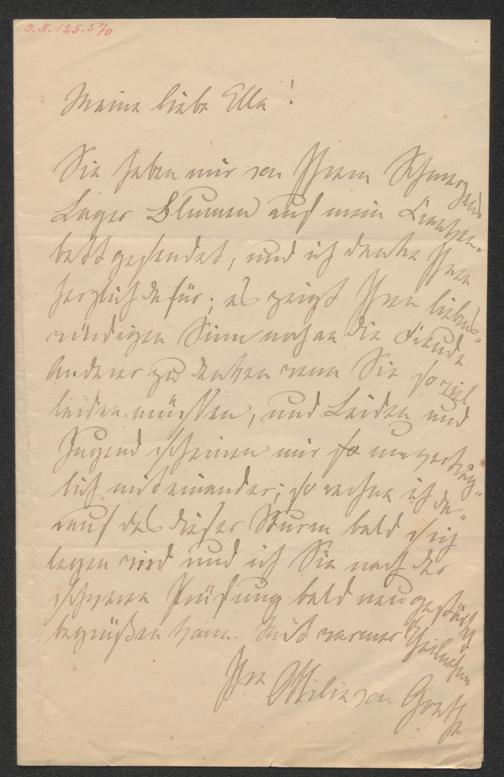 I.N. 125.570
Meine liebe Ella!
Sie haben mir von Ihrem Schmerzens
Lager Blumen auf mein Kranken-
bett gesendet, und ich danke Ihnen
herzlich dafür; es zeigt Ihren liebens-
würdigen Sinn noch an die Freude
Anderer zu denken wenn Sie so viel
leiden müssen, und Leiden und
Jugend scheinen mir so unverträg-
lich miteinander; so rechne ich da-
rauf das dieser Sturm bald sich
legen wird und ich Sie nach der
schweren Prüfung bald neu gestärkt
begrüßen kann. Mit warmer Theilnahme
Ihre Ottilie von Goethe